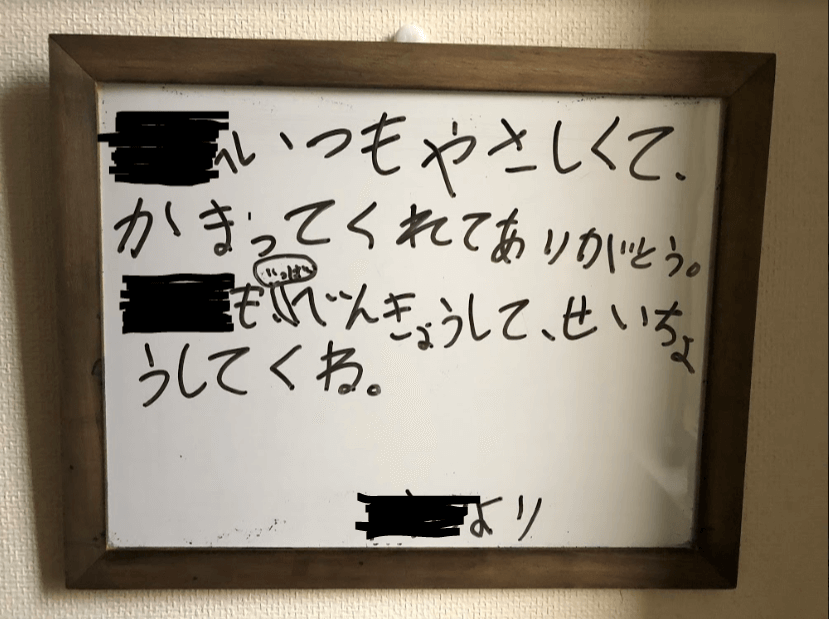 へいつもやさしくて、
かまってくれてありがとう。
もいっぱいべんきょうして、せいちょ
うしてくね。
より